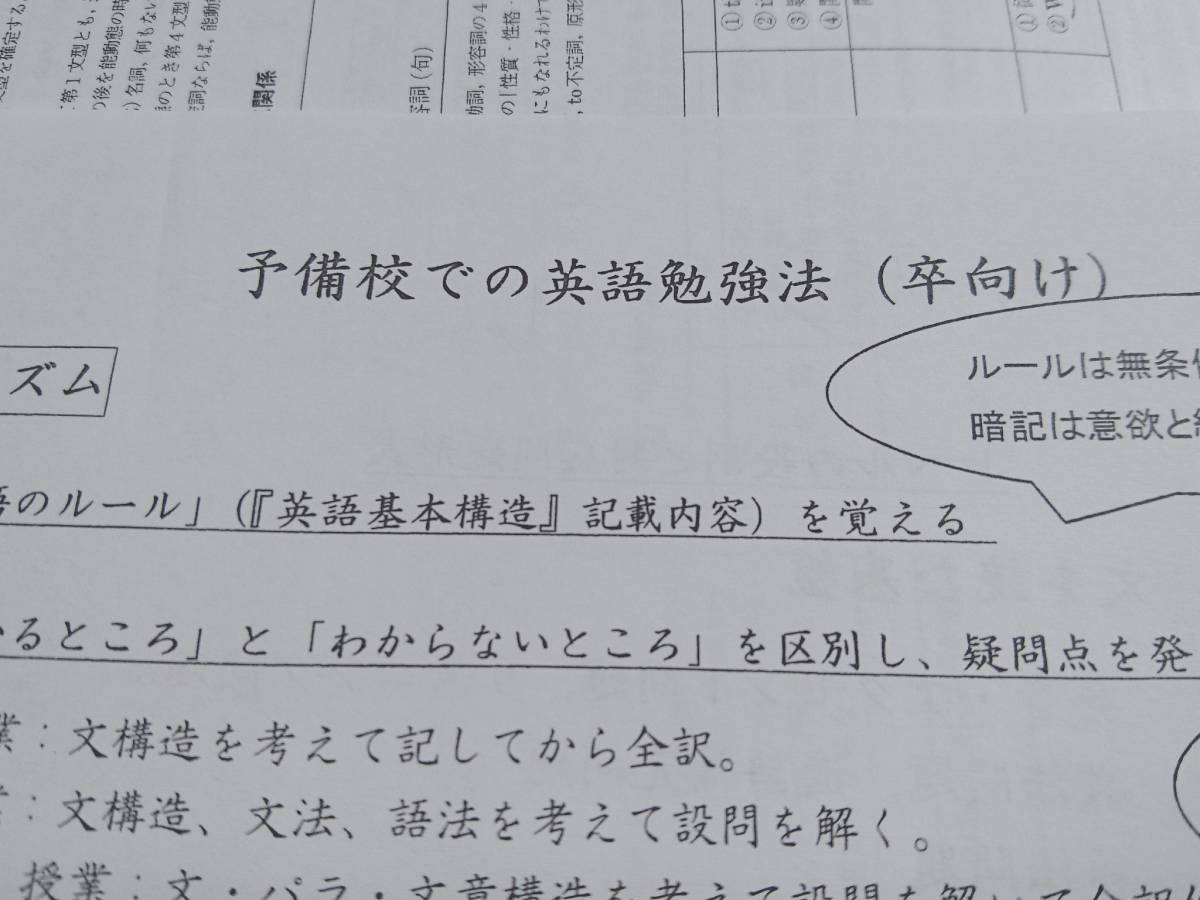 型を確定する。
第1文型とも、
の後を能動態の時
名詞、何もない
のとき第4文型
詞ならば、能動態
関係
容詞（句）
動詞，形容詞の4
の｜性質・性格・
にもなれるわけで
，to不定詞，原形
① t
② i
③
④
①
② W
予備校での英語勉強法（卒向け）
ズム
ルールは無条件
暗記は意欲と
語のルール」（『英語基本構造』記載内容）を覚える
かるところ」と「わからないところ」を区別し、疑問点を発
業：文構造を考えて記してから全訳。
業：文構造、文法、語法を考えて設問を解く。
授業：文・パラ・文章構造を考えて設問を解いて全訳